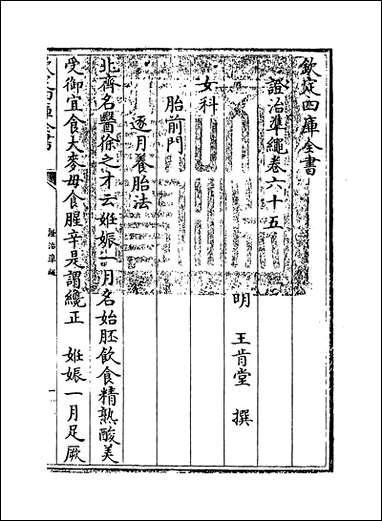 欽定四庫全書
證治準繩卷六十五
明 王肯堂 撰
女科
胎前門
逐月養胎法
北齊名醫徐之才云姙娠一月名始胚飲食精熟酸美
受御宜食大麥毋食腥辛是謂纔正 姙娠一月足厥
欽定四庫全書
證治準繩
一